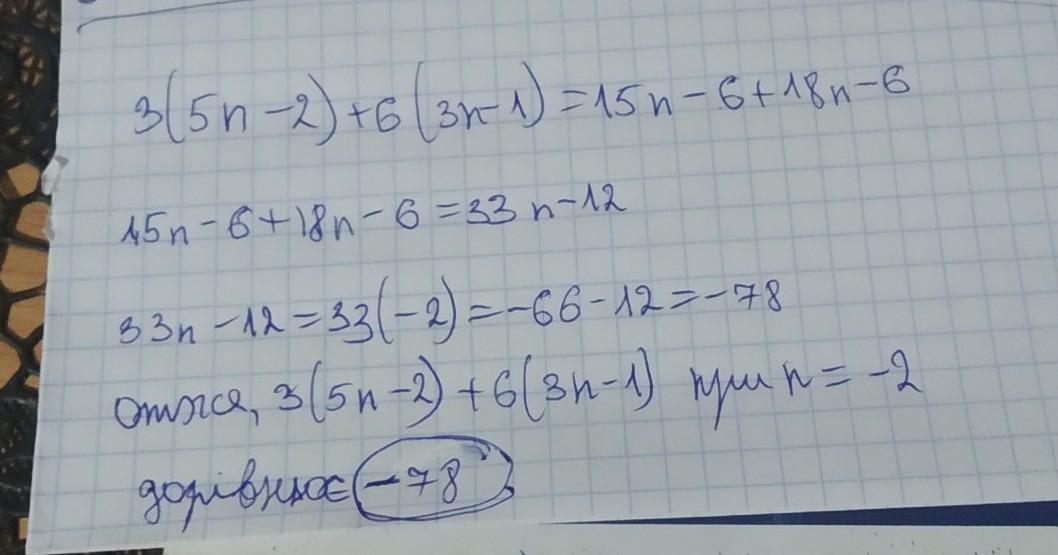 3(5n-2)+6(3n-1)=15n-6+18n-6
15n-6+18n-6=33n-12
33n-12=33(-2)=-66-12=-78
отже, 3(5n-2)+6(3n-1) при n=-2
дорівнює -78